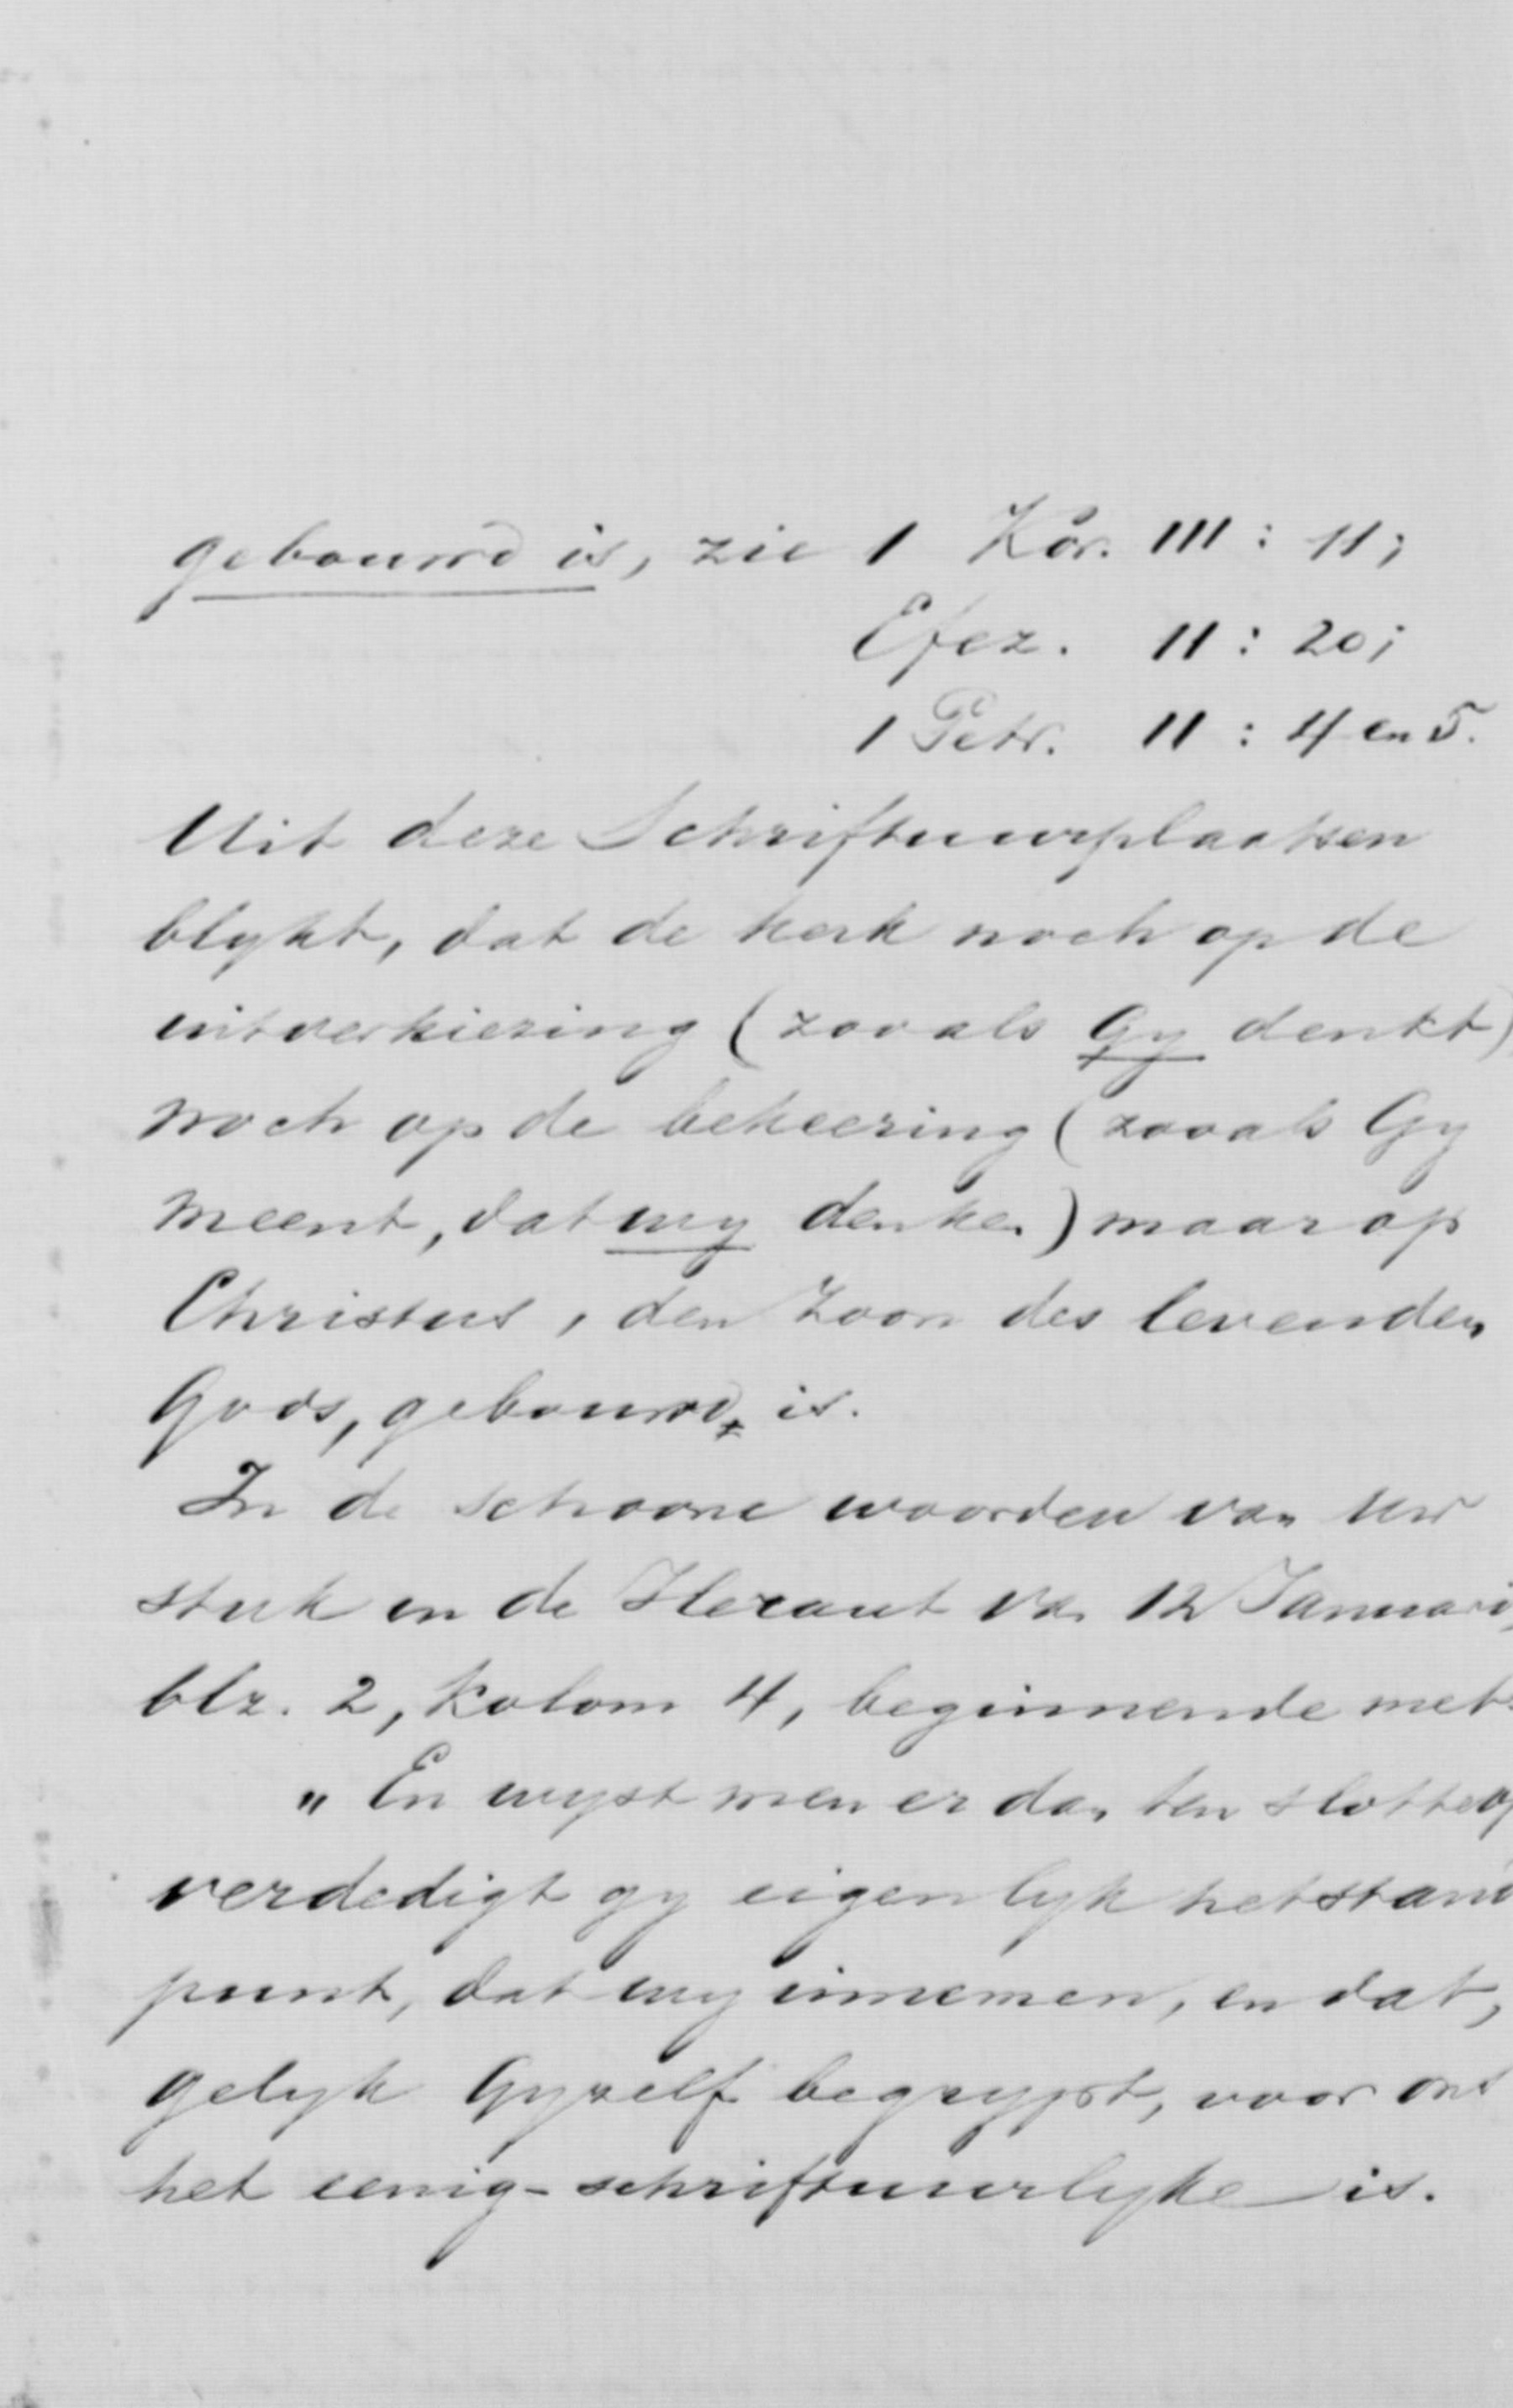 gebouwd is, zie 1 Kor. III : 11;
Efez. II : 20;
1 Petr. II : 4 en 5.
Uit deze Schriftuurplaatsen
blykt, dat de kerk noch op de
uitverkiezing (zooals Gy denkt)
noch op de bekeering (zooals Gy
meent, dat wy denken) maar op
Christus, den Zoon des levenden
Gods, gebouwd is.
In de schoone woorden van Uw
stuk in de Heraut van 12 Januari,
blz. 2, kolom 4, beginnende met:
„ En wyst men er dan ten slotte op
verdedigt gy eigenlyk het stand
punt, dat wy innemen, en dat,
gelyk Gyzelf begrypt, voor ons
het eenig-schriftuurlyke is.